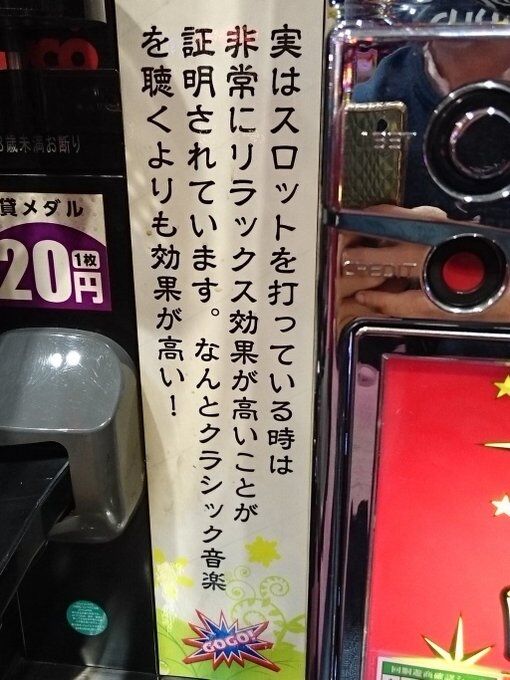 実はスロットを打っている時は
非常にリラックス効果が高いことが
証明されています。なんとクラシック音楽
を聴くよりも効果が高い！
GOGO!
歳未満お断り
貸メダル
20円
1枚
CREDIT